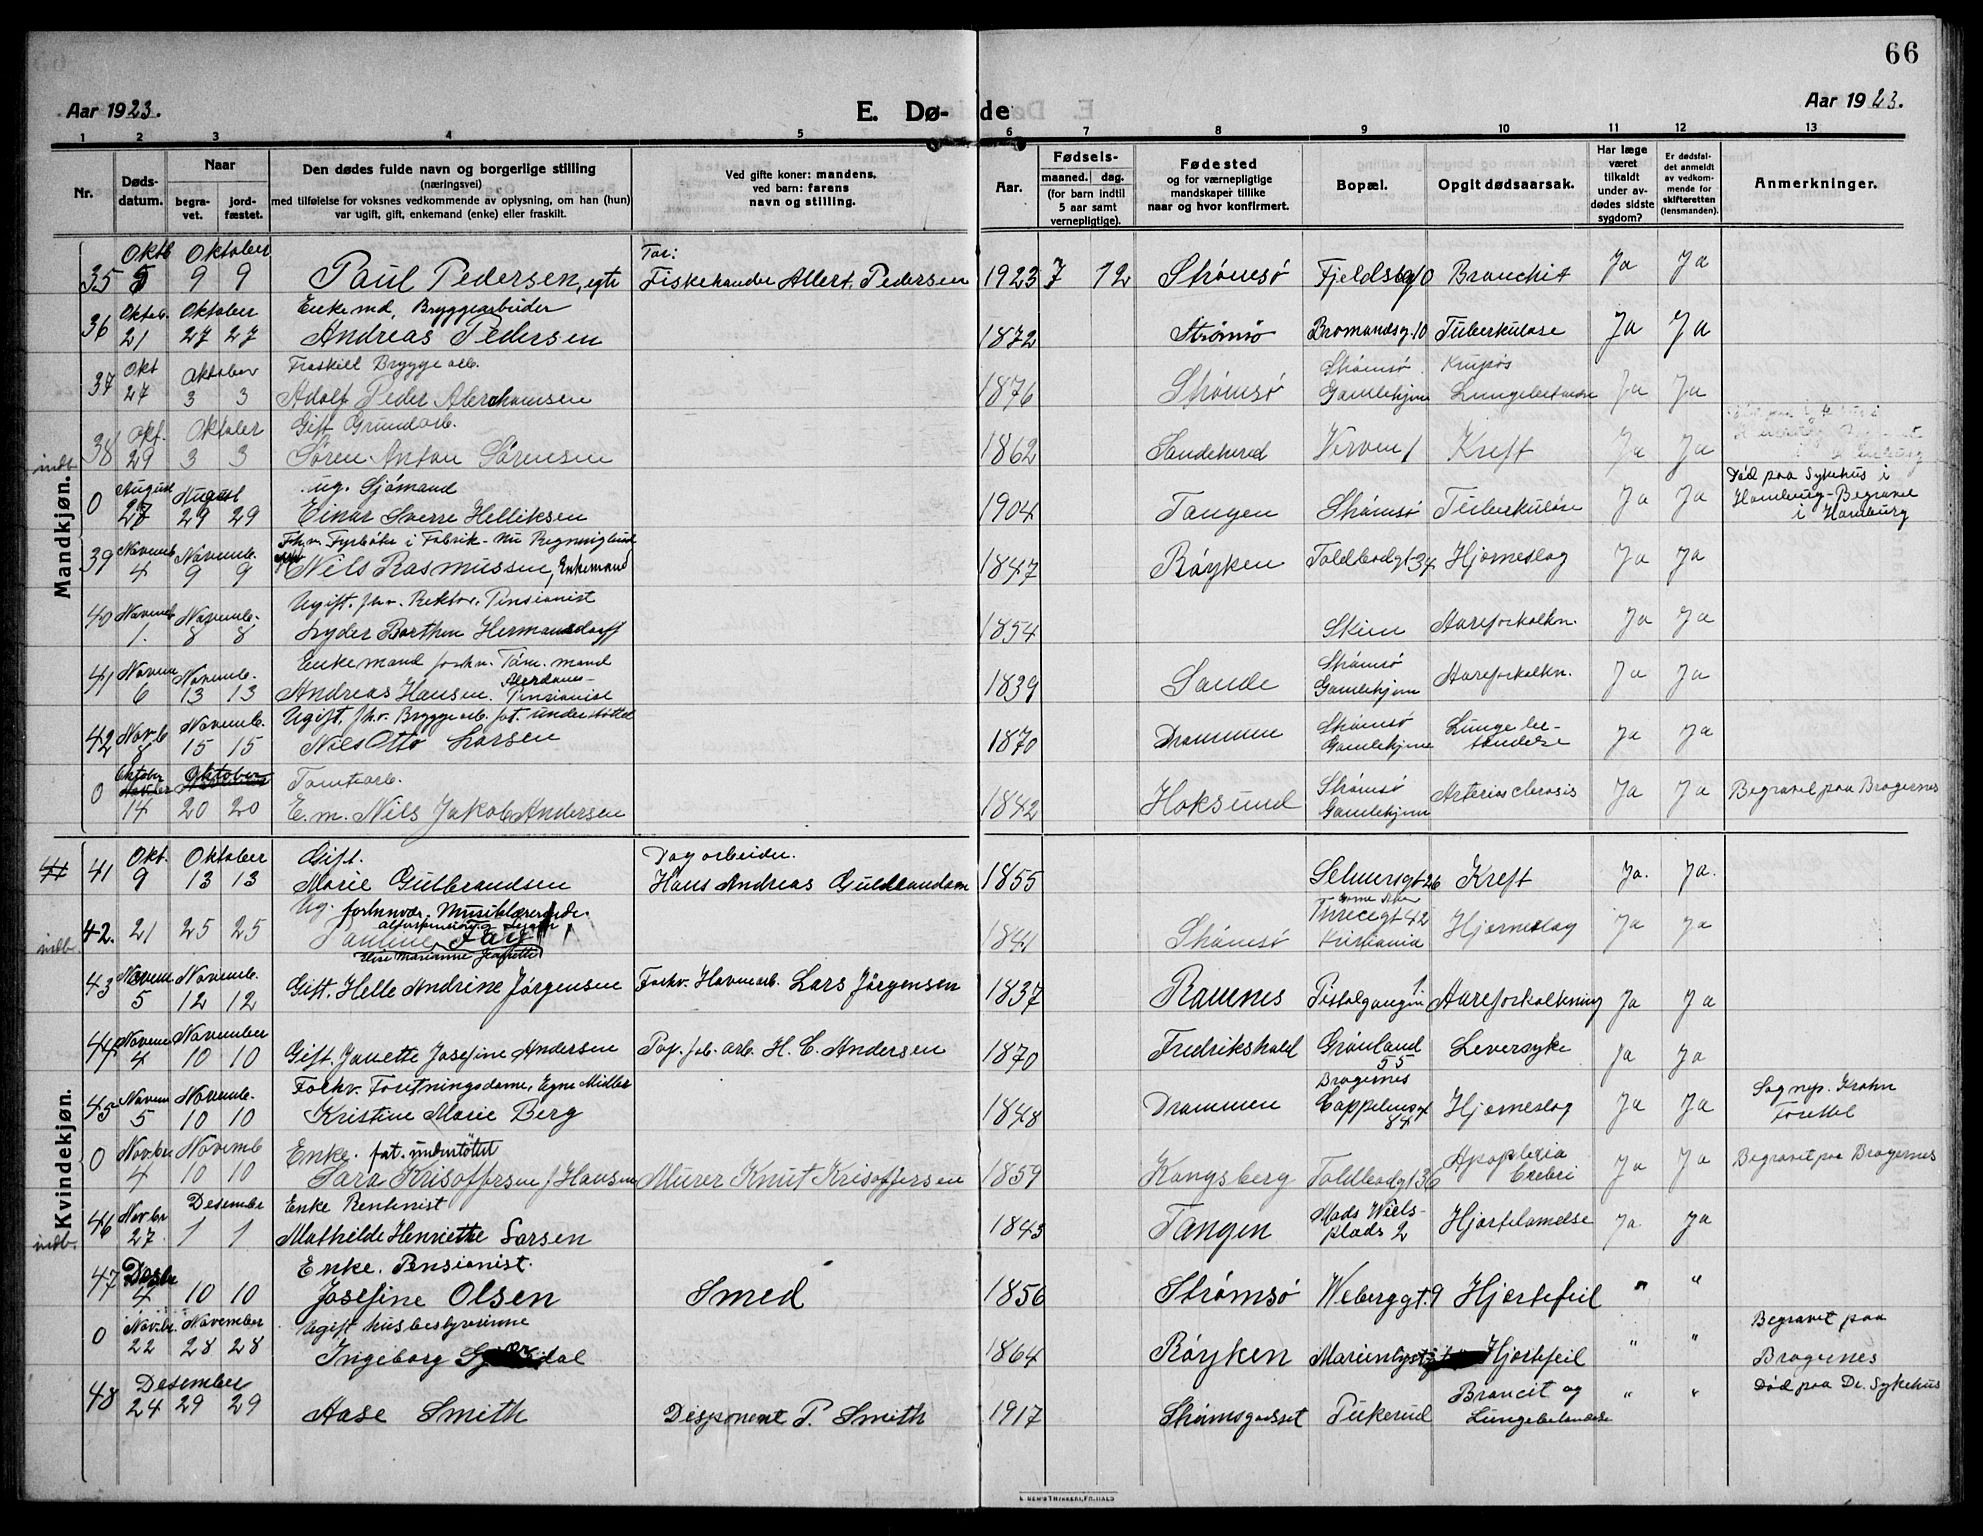 66
Aar 1923.
E. Dø-
de
Aar 1923.
1 2 3 4 5 6 7 8 9 10 11 12 13
Nr.
Døds-
datum.
Naar
begra-
vet.
jord-
fæstet.
Den dødes fulde navn og borgerlige stilling
(næringsvei)
med tilføielse for voksnes vedkommende av oplysning, om han (hun)
var ugift, gift, enkemand (enke) eller fraskilt.
Ved gifte koner: mandens,
ved barn: farens
navn og stilling.
Aar.
Fødsels-
maaned. dag.
(for barn indtil
5 aar samt
vernepligtige).
Fødested
og for værnepligtige
mandskaper tillike
naar og hvor konfirmert.
Bopæl.
Opgit dødsaarsak.
Har læge
været
tilkaldt
under av-
dødes sidste
sygdom?
Er dødsfal-
det anmeldt
av vedkom-
mende for
skifteretten
(lensmanden).
Anmerkninger.
Mandkjøn.
Oktb Oktober Far:
35 5 9 9 Paul Pedersen, egte Fiskehandler Albert Pedersen 1923 7 12 Strømsø Fjeldsbg 10 Bronchit Ja Ja
Oktob. Oktober Enkemd, Bryggearbeider
36 21 27 27 Andreas Pedersen 1872 Strømsø Bromandsg. 10 Tuberkulose Ja Ja
Okt Oktober Fraskilt Bryggearb. Strømsø Krupøs
37 27 3 3 Adolf Peder Abrahamsen 1876 Strømsø Gamlehjem Lungebetændelse Ja Ja
Okt. Oktober Gift Grundarb.
indb. 38 29 3 3 Søren Anton Sørensen 1862 Sandeherred Verven 1 Kreft Ja Ja
August August ug. Sjømand Død paa Sykehus i
0 27 29 29 Einar Sverre Helliksen 1904 Tangen Strømsø Tuberkulose Ja Ja Hamburg - Begravet
i Hamburg
Novemb Novemb. Fhv. Fyrbøter i Fabrik - nu
39 4 9 9 Nils Rasmussen, Enkemand 1847 Røyken Toldbodgt 34 Hjerneslag Ja Ja
Novemb Novemb. Ugift, fhv. Rektor. Pensionist
40 1. 8 8 Lyder Borthen Hermansdorff 1854 Skien Aareforkalkn. Ja Ja
Novem Novemb. Enkemand forhv. Tøm. mand Strømsø
41 6 13 13 Andreas Hansen. Pensionist 1839 Sande Gamlehjem Aareforkalkn. Ja Ja
Novb Novemb. Ugift, fhv. Bryggearb. fat. understøttet Strømsø Lungebe-
42 8 15 15 Nils Otto Larsen 1870 Drammen Gamlehjem tændelse Ja Ja
Oktober Oktober Tomtearb. Strømsø
0 14 20 20 E. m. Nils Jakob Andersen 1842 Hoksund Gamlehjem Arteriosclerosis Ja Ja Begravet paa Bragernes
Kvindekjøn.
Okt. Oktober Gift. Dagarbeider.
41 9 13 13 Marie Gulbrandsen Hans Andreas Guldbrandsen 1855 Selmersgt 26 Kreft Ja. Ja.
Ug. forhenvær. Musiklærerinde.
indb. 42. 21 25 25 Pauline Fay 1844 Strømsø Kristiania Hjerneslag Ja Ja
Elise Marianne Jeanette
Novem Novemb.
43 5 12 12 Gift. Helle Andrine Jørgensen Forhv. Havnearb. Lars Jørgensen 1837 Ramnes Pistolgangen 1. Aareforkalkning Ja Ja
Novem November
44 4 10 10 Gift. Janette Josefine Andersen Pap. fab. arb. H. C. Andersen 1870 Fredrikshald Grønland 55 Leversyke Ja Ja
Novem Novemb. Forhv. Foretningsdame, Egne Midler Bragernes Sogнep. Krohn
45 5 10 10 Kristine Marie Berg 1848 Drammen Cappelensgt 84 Hjerneslag Ja Ja Forettet
Novbr Novemb Enke. fat. understøttet Apoplexia
0 4 10 10 Sara Kristoffersen f. Hansen Murer Knut Kristoffersen 1859 Kongsberg Toldbodgt 36 Cerebri Ja Ja Begravet paa Bragernes
Novbr Desember Enke Rentenist Mads Wiels-
indb. 46 27 1 1 Mathilde Henriette Larsen 1843 Tangen plads 2 Hjertelamelse Ja Ja
Desbr Enke. Pensionist.
47 4 10 10 Josefine Olsen Smed 1856 Strømsø Webergt. 9 Hjertefeil " "
Novbr. November Ugift husbestyrinne Begravet paa
0 22 28 28 Ingeborg 1864 Røyken Marienlyst Hjertefeil " " Bragernes
Desember Broncit og Død paa Dr. Sykehus
48 24 29 29 Aase Smith Disponent P. Smith 1917 Strømsgodset Pukerud Lungebetændelse " "